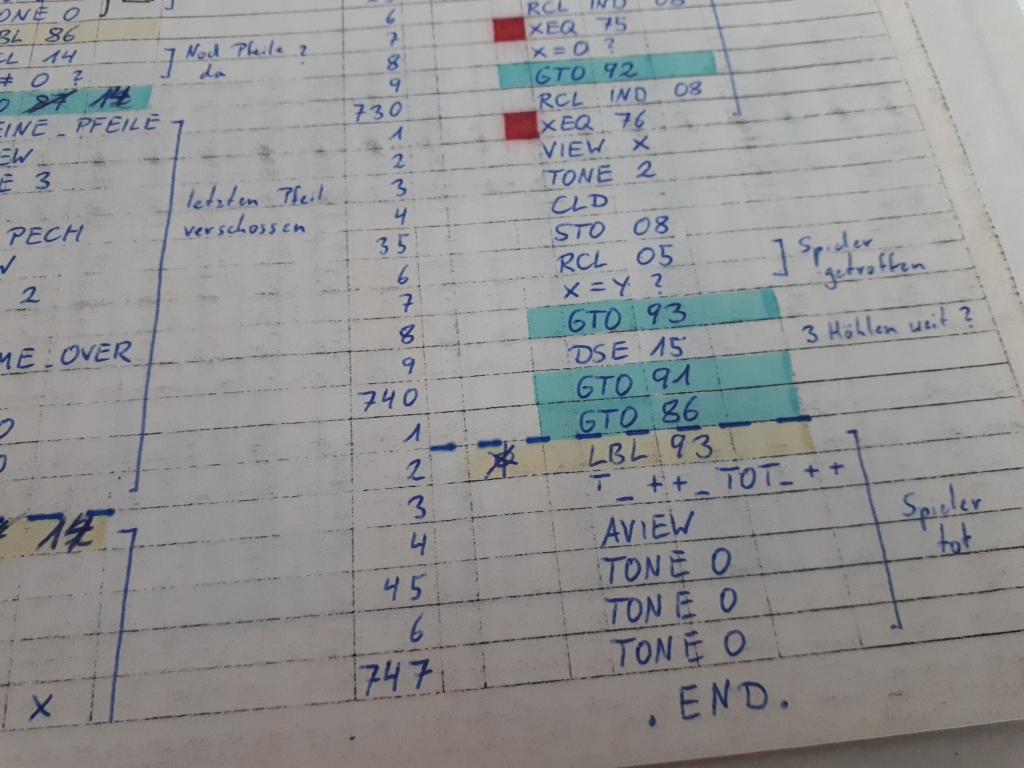 TONE 0
LBL 86
RCL 14
Noch Pfeile ?
da
≠ 0 ?
14
KEINE_PFEILE
letzten Pfeil
verschossen
3
PECH
2
GAME_OVER
0
0
14
X
RCL IND 08
6 XEQ 75
7 X=0 ?
8 GTO 92
9 RCL IND 08
730 XEQ 76
1 VIEW X
2 TONE 2
3 CLD
4 STO 08
35 RCL 05
6 X=Y ?
Spieler
getroffen
7 GTO 93
8 DSE 15
3 Höhlen weit ?
9 GTO 91
740 GTO 86
1 LBL 93
2 T_++_TOT_++
3 AVIEW
4 TONE 0
45 TONE 0
6 TONE 0
747 .END.
Spieler
tot